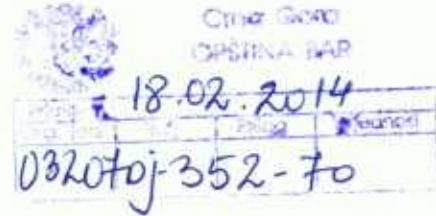 Crna Gora
OPŠTINA BAR
18.02.2014
032070j-352-70